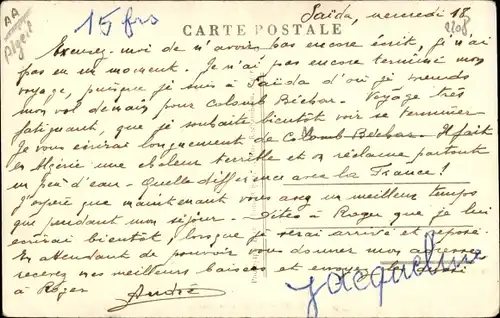 AA
Algérie
15 frs
CARTE POSTALE
Saïda, mercredi 18
Excusez-moi de n'avoir pas encore écrit, je n'ai
pas eu un moment. Je n'ai pas encore terminé mon
voyage, puisque je suis à Saïda d'où je prends
mon vol demain pour Colomb Béchar. Voyage très
fatigant, que je souhaite bientôt voir se terminer
Je vous écrirai longuement de Colomb-Béchar. Il fait
en Algérie une chaleur terrible et on réclame partout
un peu d'eau - Quelle différence avec la France!
J'espère que maintenant vous avez un meilleur temps
que pendant mon séjour - Dites à Roger que je lui
écrirai bientôt, lorsque je serai arrivé et reposé.
En attendant de pouvoir vous donner mon adresse
recevez mes meilleurs baisers et
à Roger
André
Jacqueline